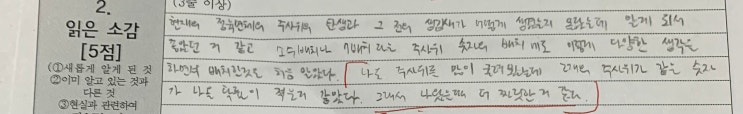 (3줄 이상)
2.
읽은 소감
[5점]
(①새롭게 알게 된 것
②이미 알고 있는 것과
다른 것
③현실과 관련하여
현재의 정육면체의 주사위의 탄생과 그 전의 생김새가 어떻게 생겼는지 몰랐는데 알게 되서
좋았던 거 같고 주사위 숫자의 배치 에도 이렇게 다양한 생각을
하면서 배치한것을 처음 알았다. 나도 주사위를 많이 굴려봤는데 2개의 주사위가 같은 숫자
가 나올 확률이 적은거 같았다. 그래서 나왔을때 더 짜릿한 거 같다.